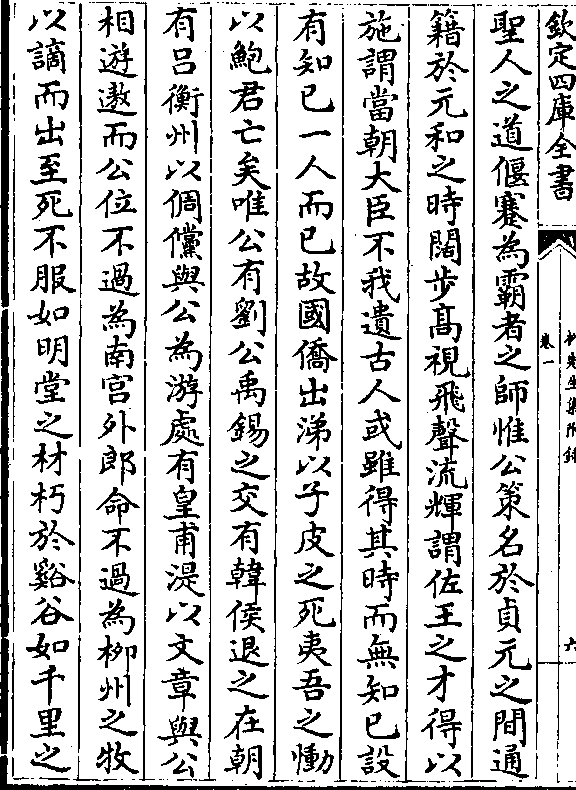 欽定四庫全書
卷一
六
聖人之道偃蹇為霸者之師惟公策名於貞元之間通
籍於元和之時闊步髙視飛聲流輝謂佐王之才得以
施謂當朝大臣不我遺古人或雖得其時而無知已設
有知已一人而已故國僑出涕以子皮之死夷吾之慟
以鮑君亡矣唯公有劉公禹錫之交有韓侯退之在朝
有吕衡州以倜儻與公為游處有皇甫湜以文章與公
相遊遨而公位不過為南宫外郎命不過為柳州之牧
以謫而出至死不服如明堂之材朽於谿谷如千里之